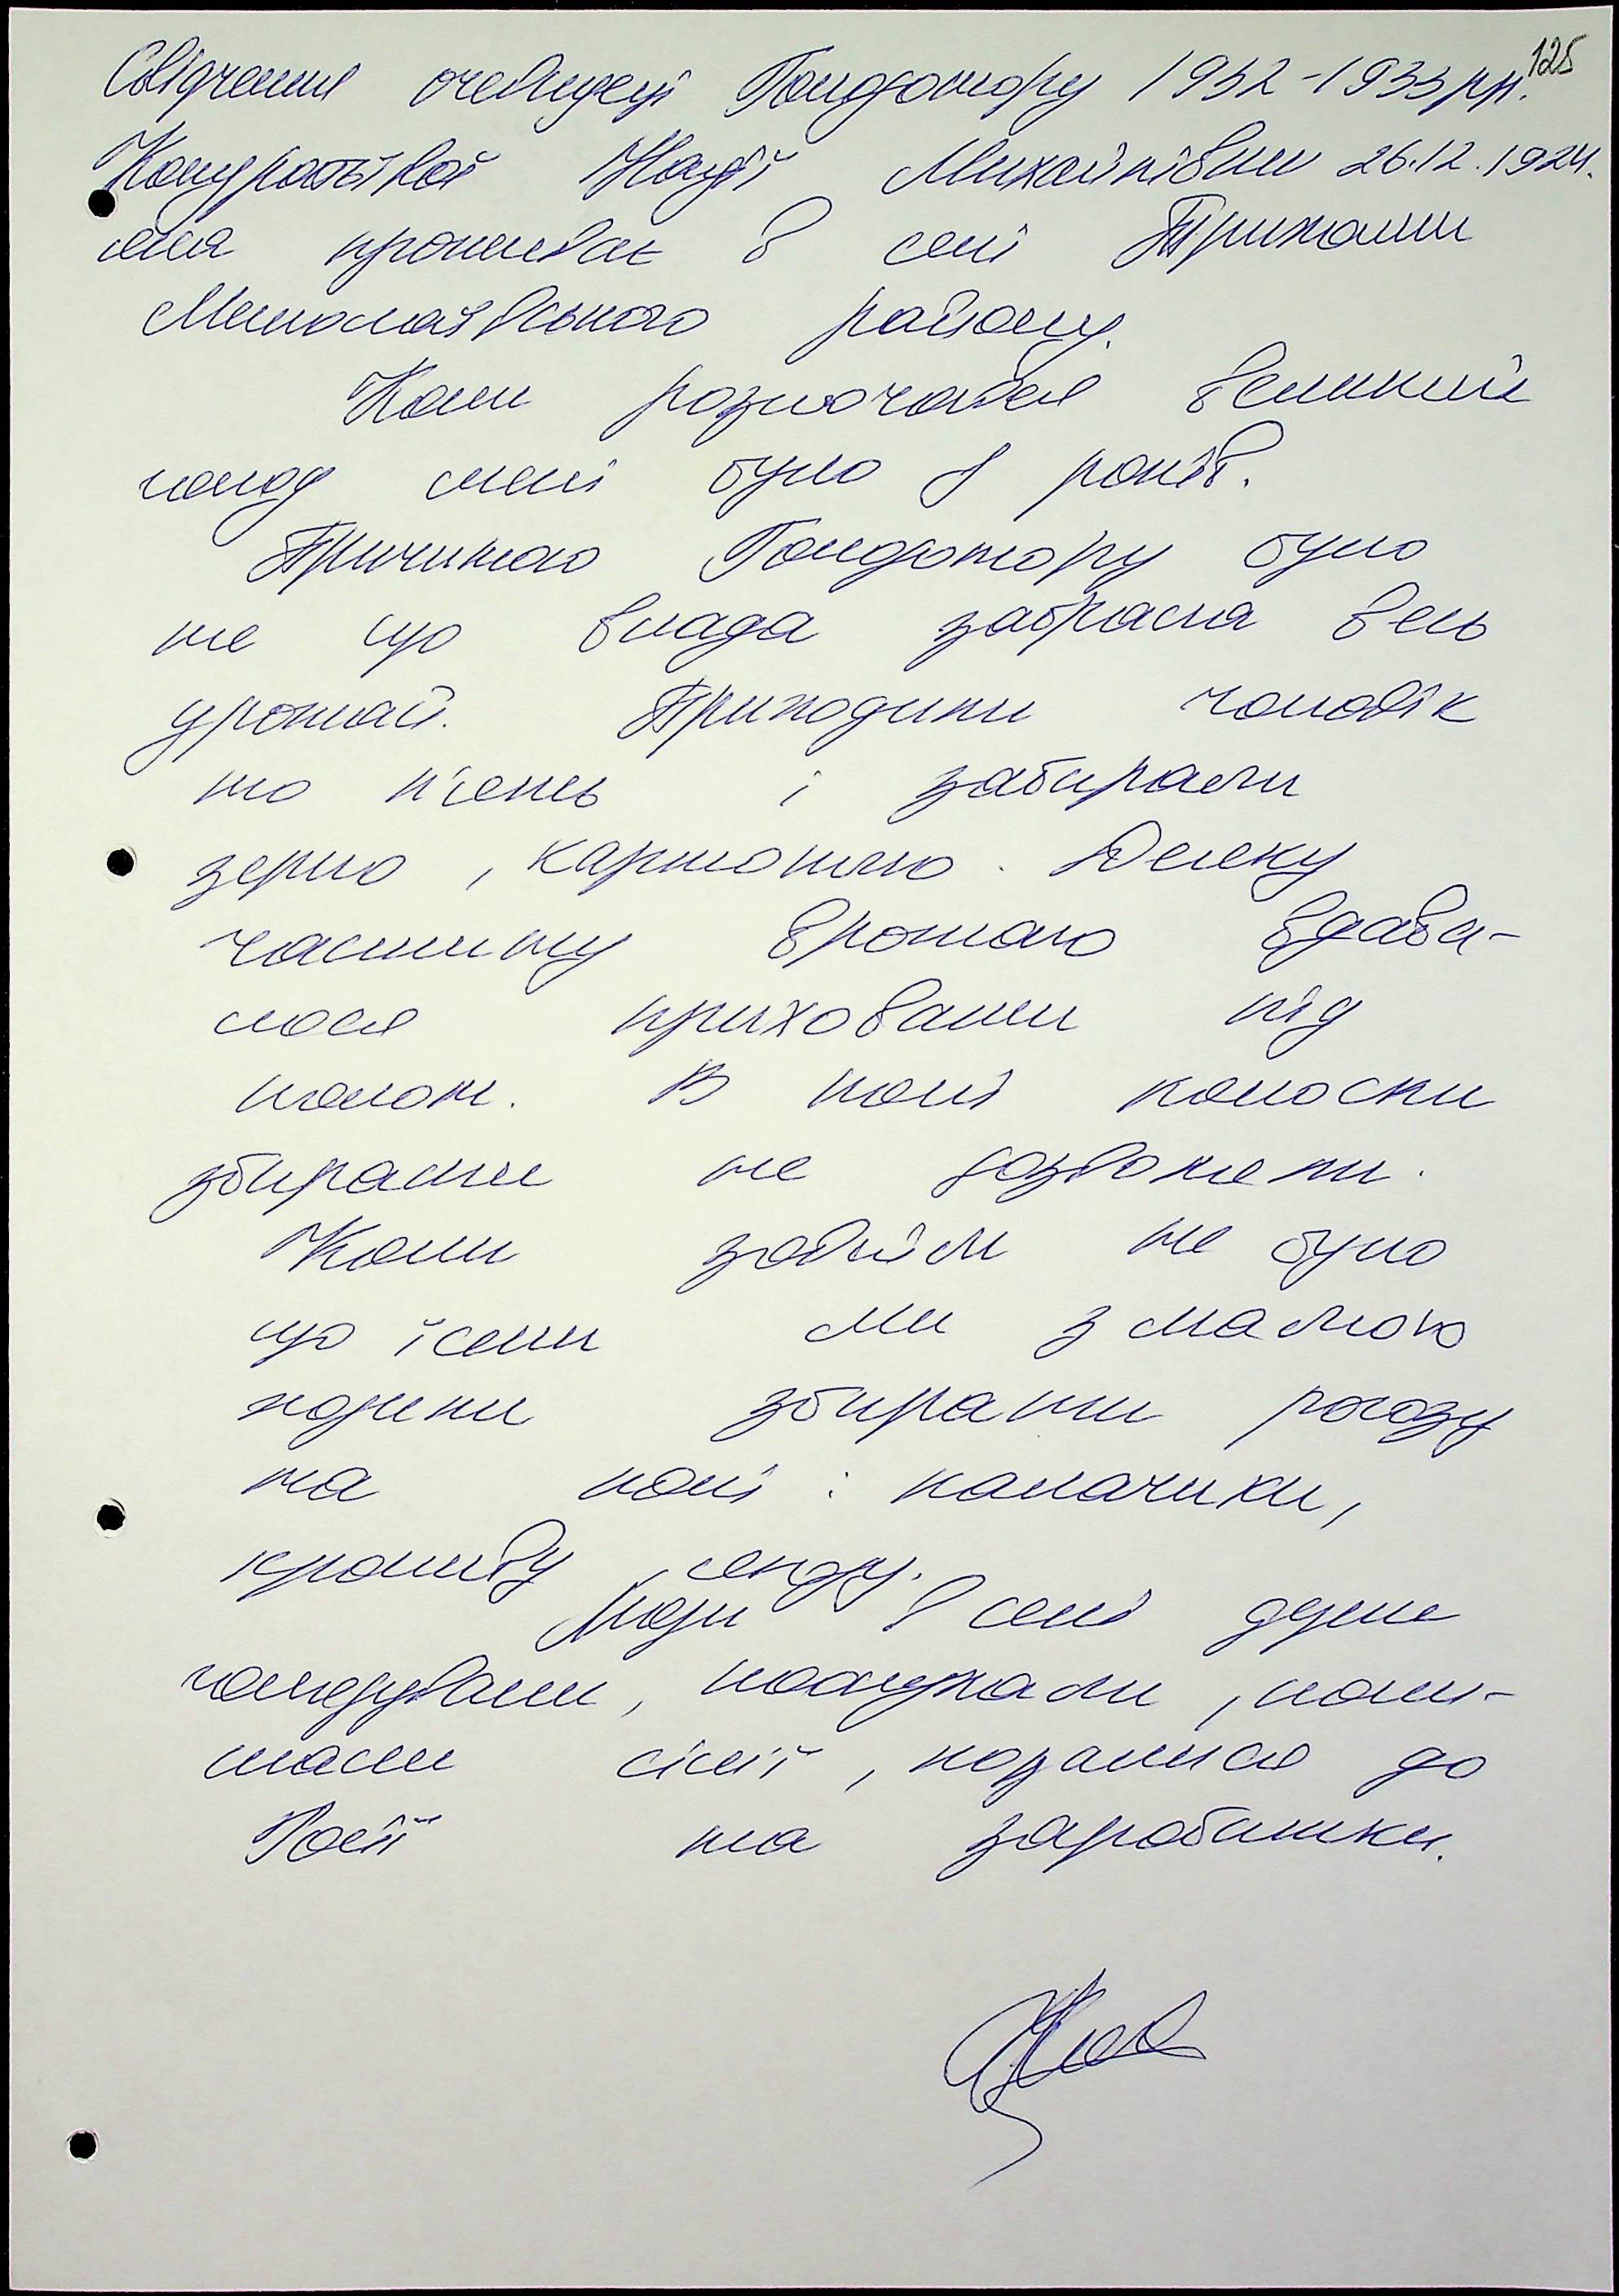 125
Свідчення очевидеці Голодомору 1932-1933 рр.
Кондратьєвої Надії Михайлівни 26.12.1924.
яка проживає в селі Трихати
Миколаївського району.
Коли розпочався великий
голод мені було 8 років.
Причиною Голодомору було
те що влада забрала весь
урожай. Приходили чоловік
по п'ять і забирали
зерно, картоплю. Деяку
частину врожаю вдава-
лося приховати під
полом. В полі колоски
збирати не дозволяли.
Коли зовсім не було
що їсти ми з мамою
ходили збирати рогозу
на полі: калачики,
кропиву,
Люди в селі дуже
голодували, попухали, поли-
шали сім'ї, подалися до
Росії на заробітки.